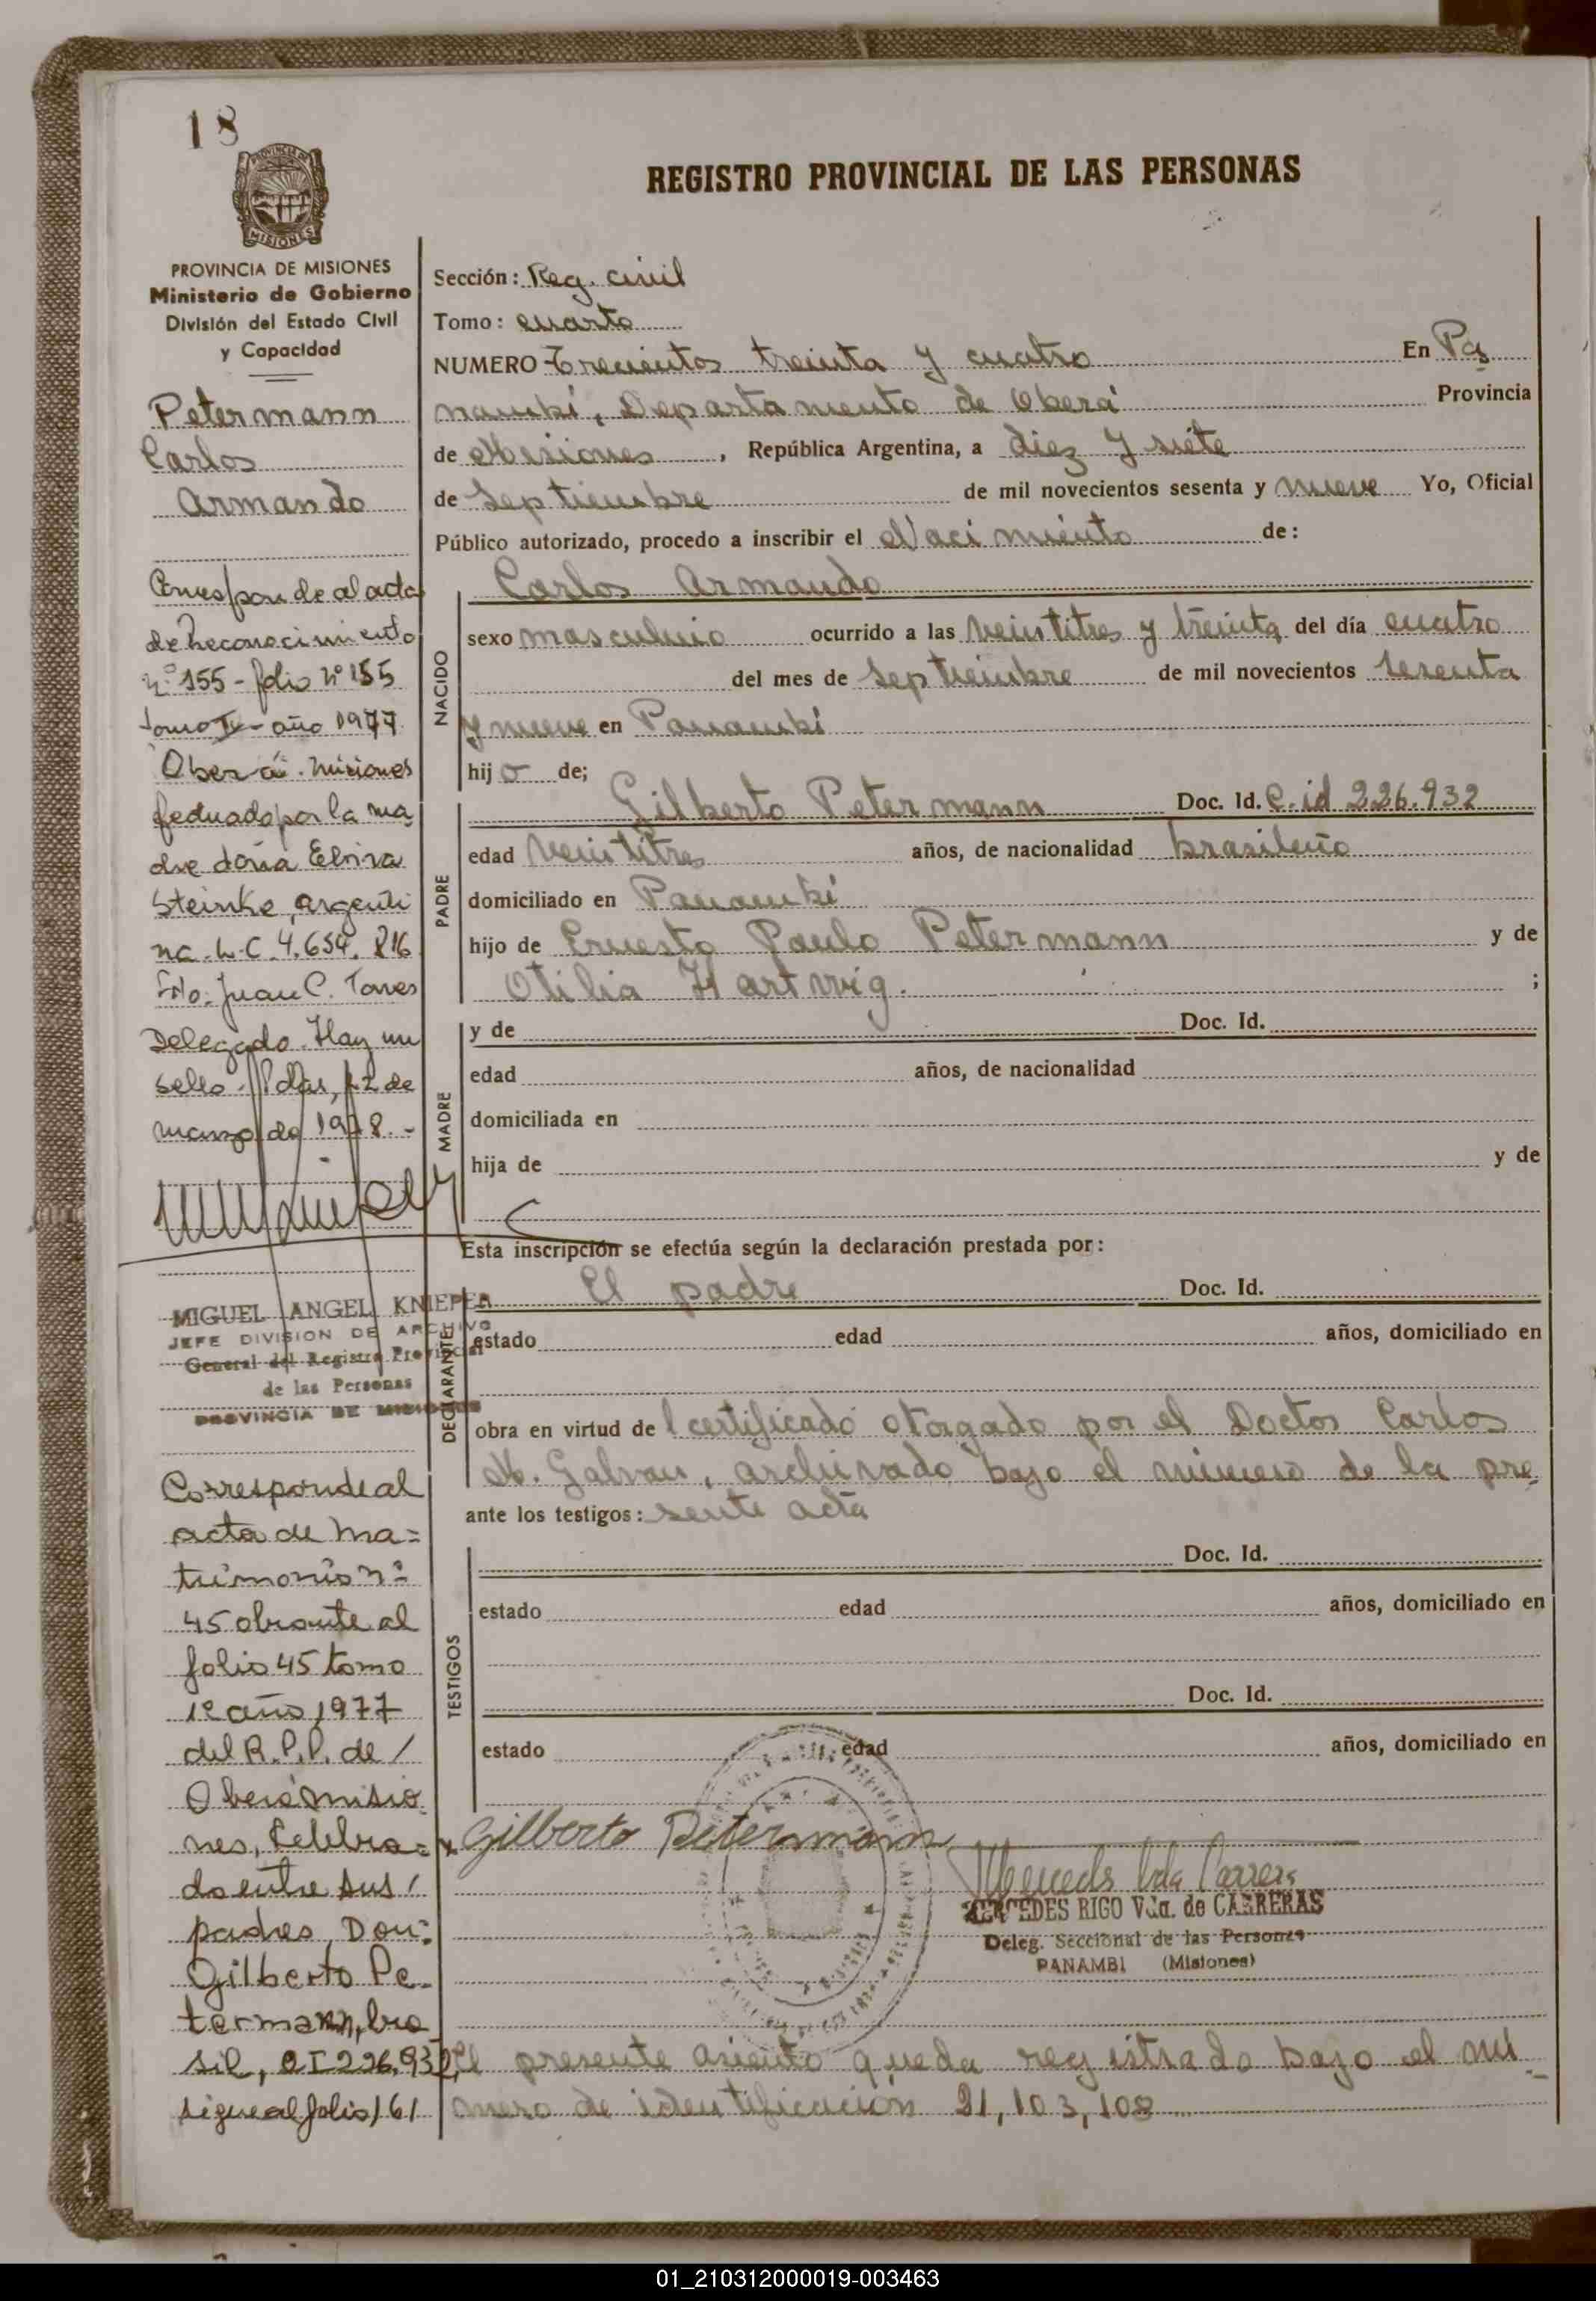 18
PROVINCIA DE
MISIONES
REGISTRO PROVINCIAL DE LAS PERSONAS
PROVINCIA DE MISIONES
Ministerio de Gobierno
División del Estado Civil
y Capacidad
Petermann
Carlos
Armando
Corresponde al acta
de Reconocimiento
nº 155 - folio nº 155
tomo Iº - año 1977
Oberá - Misiones
fectuada por la ma
dre doña Elvira
Steinke, argenti
na - L.C. 4.654.816
Fdo: Juan C. Torres
Delegado. Hay un
sello - Pdas, 12 de
marzo de 1978. -
MIGUEL ANGEL KNIEPER
JEFE DIVISION DE ARCHIVO
General del Registro Provincial
de las Personas
PROVINCIA DE MISIONES
Corresponde al
acta de ma=
trimonio nº
45 obrante al
folio 45 tomo
1º año 1977
del R.P.P. de /
Oberá Misio
nes, Celebra=
do entre sus /
padres, Don:
Gilberto Pe-
termann, bra
sil, CI 226,932,
sigue al folio 161
Sección: Reg. civil
Tomo: cuarto
NUMERO Trecientos treinta y cuatro En Pa
nambí, Departamento de Oberá Provincia
de Misiones, República Argentina, a diez y siete
de Septiembre de mil novecientos sesenta y nueve Yo, Oficial
Público autorizado, procedo a inscribir el Nacimiento de:
NACIDO
Carlos Armando
sexo masculino ocurrido a las veintitres y treinta del día cuatro
del mes de Septiembre de mil novecientos sesenta
y nueve en Panambí
hijo de;
PADRE
Gilberto Petermann Doc. Id. C. id 226.932
edad Veintitres años, de nacionalidad brasileño
domiciliado en Panambí
hijo de Ernesto Paulo Petermann y de
Otilia Hartwig. ;
MADRE
y de Doc. Id.
edad años, de nacionalidad
domiciliada en
hija de y de
Esta inscripción se efectúa según la declaración prestada por:
DECLARANTE
El padre Doc. Id.
estado edad años, domiciliado en
obra en virtud de l certificado otorgado por el Doctor Carlos
M. Galvan, archivado bajo el número de la pre
ante los testigos: sente acta
TESTIGOS
Doc. Id.
estado edad años, domiciliado en
Doc. Id.
estado edad años, domiciliado en
x Gilberto Petermann
MERCEDES RIGO Vda. de CARRERAS
Deleg. Seccional de las Personas
PANAMBI (Misiones)
El presente asiento queda registrado bajo el nú
mero de identificación 21,103,108
01_210312000019-003463